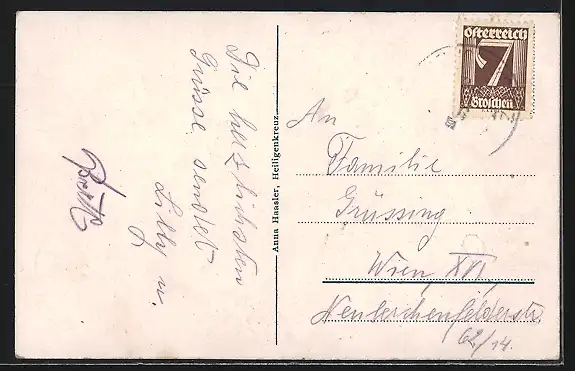 Die herzlichsten
Grüsse sendet
Lilly u.
Anna Haasler, Heiligenkreuz
österreich
7
Groschen
An
Familie
Grüssing
Wien, XVI
Neulerchenfelderstr.
62/14.